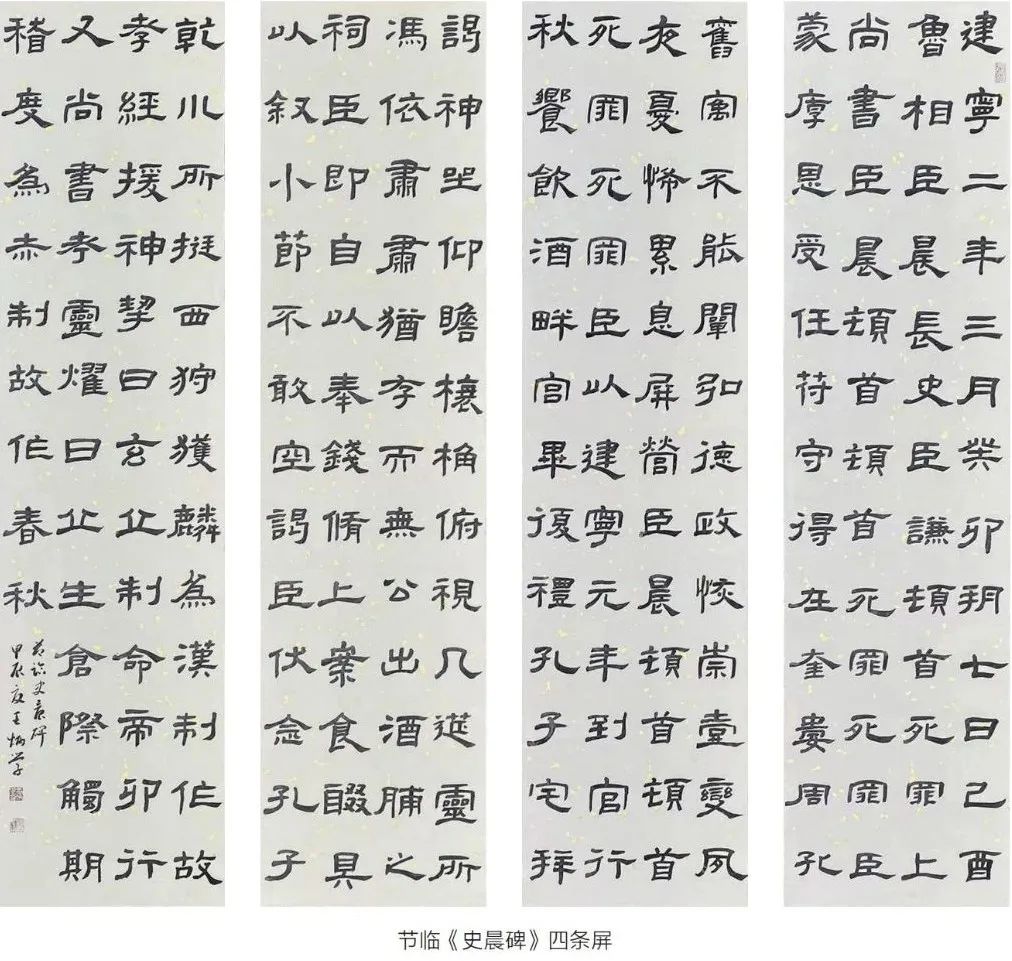 建寧二年三月癸卯朔七日己酉
魯相臣晨長史臣謙頓首死罪上
尚書臣晨頓首頓首死罪死罪臣
蒙厚恩受任符守得在奎婁周孔
舊寓不能闡弘德政恢崇壹變夙
夜憂怖累息屏營臣晨頓首頓首
死罪死罪臣以建寧元年到官行
秋饗飲酒畔宮畢復禮孔子宅拜
謁神坐仰瞻榱桷俯視几筵靈所
馮依肅肅猶存而無公出酒脯之
祠臣即自以奉錢脩上案食醊具
以叙小節不敢空謁臣伏念孔子
乾川所挺西狩獲麟為漢制作故
孝經援神挈曰玄丘制命帝卯行
又尚書考靈燿曰丘生倉際觸期
稽度為赤制故作春秋
节临史晨碑
甲辰夏王炳学
节临《史晨碑》四条屏